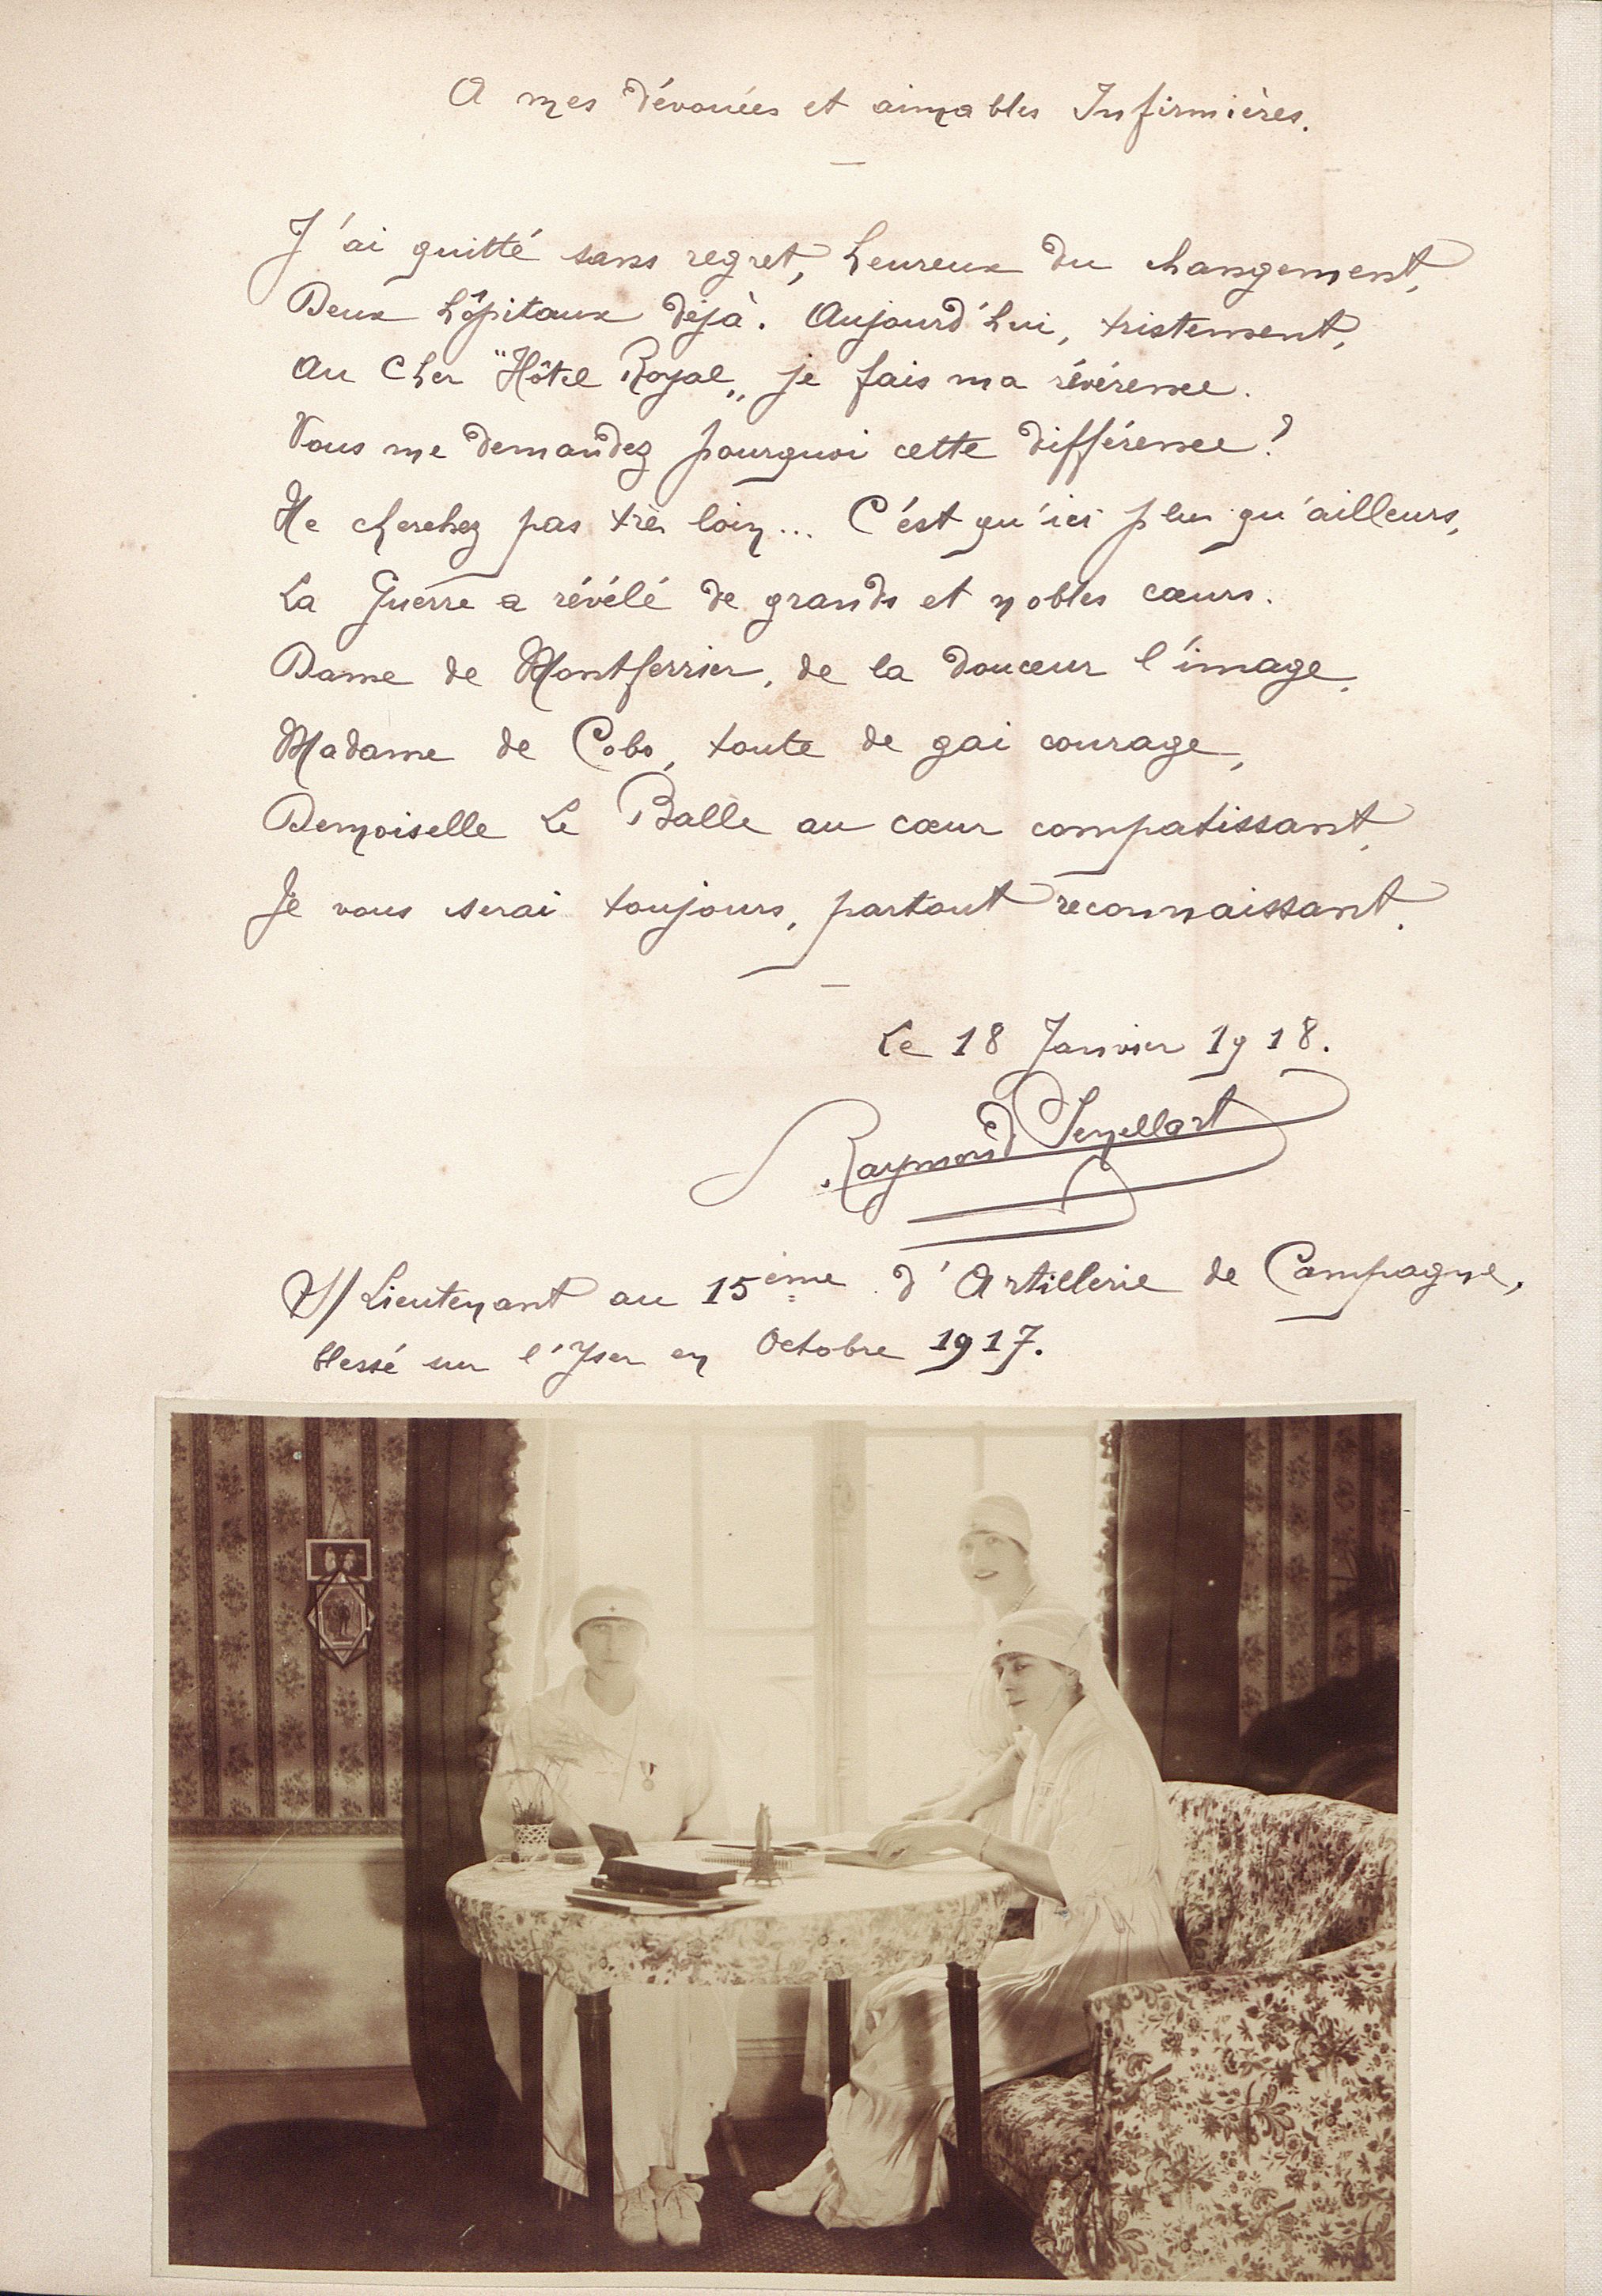 A mes dévouées et aimables Infirmières.
J'ai quitté sans regret, heureux du changement,
Deux hôpitaux déjà. Aujourd'hui, tristement,
Au cher "Hôtel Royal„ je fais ma révérence.
Vous me demandez pourquoi cette différence?
Ne cherchez pas très loin... C'est qu'ici plus qu'ailleurs,
La Guerre a révélé de grands et nobles cœurs.
Dame de Montferrier, de la douceur l'image,
Madame de Cobo, toute de gai courage,
Demoiselle Le Balle au cœur compatissant,
Je vous serai toujours, partout reconnaissant.
Le 18 Janvier 1918.
Raymond Senellart
S/Lieutenant au 15ème d'Artillerie de Campagne,
blessé sur l'Yser en Octobre 1917.